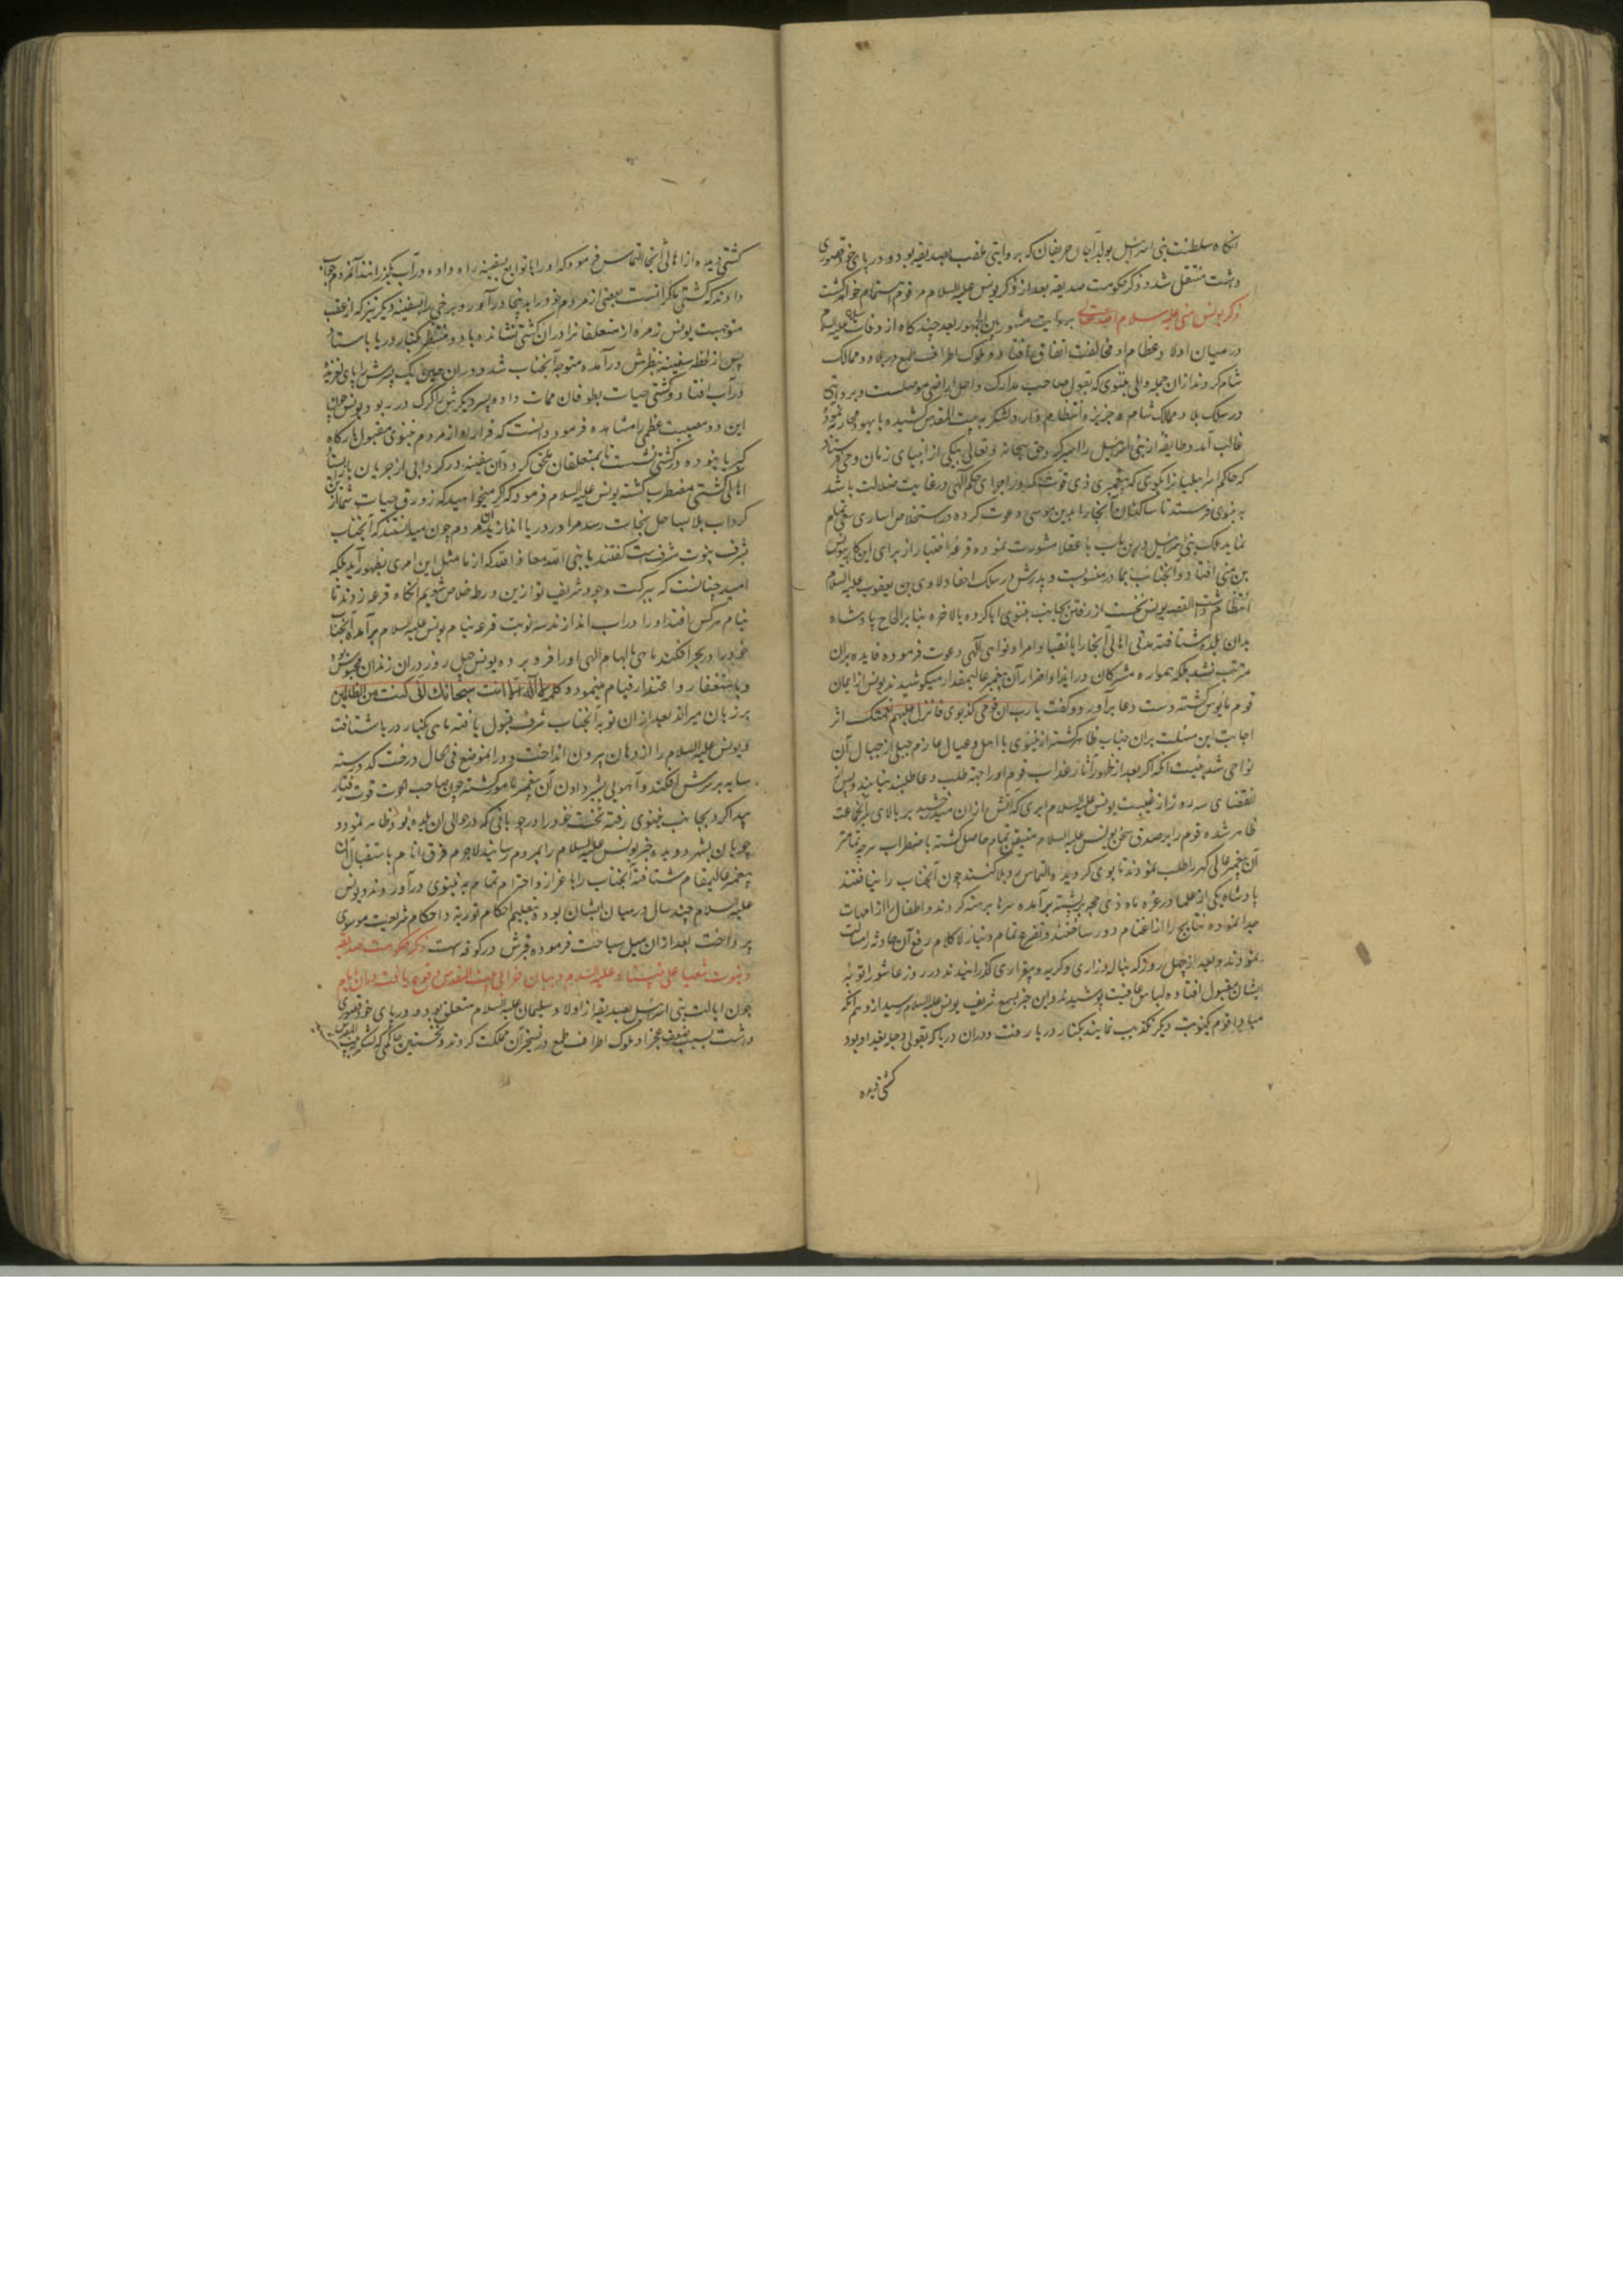 انکاه سلطنت بنی اسرائیل بولد که بروایتی ملقب بصدیقه بود و در پای خود قصوری
داشت منتقل شد و ذکر حکومت صدیقه بعد از ذکر یونس علیه السلام مرقوم خواهد کشت
ذکر یونس نبی علیه سلام بروایت مشهور بین الجمهور بعد چند کاه از وفات علیه السلام
در میان اولاد عظام او مخالفت اتفاق افتاد و ملوک اطراف طمع در بلاد و ممالک
شام کردند ازان جمله والی نینوی که بقول صاحب مدارک داخل اراضی موصلست و بروایتی
در سلک بلاد ممالک شام و جزیره انتظام دارد لشکر به بیت المقدس کشیده با یهود محاربه نمود
غالب آمد و طایفه از بنی اسرائیل را اسیر کرد و حق سبحانه و تعالی بیکی از انبیای زمان وحی فرستاد
که حاکم اسرائیلیانرا بکوی که پیغمبری ذی قوت که در اجرای حکم الهی در غایت صلابت باشد
به نینوی فرستد تا ساکنان آنجا را بدین موسی دعوت کرده در استخلاص اساری سعی تمام
نماید ملک بنی اسرائیل درین باب با عقلا مشورت نموده قرعه اختیار از برای این کار بیونس
بن متی افتاد و آنجناب بمادر منسوبست و پدرش در سلک احفاد لاوی بن یعقوب علیه السلام
انتظام داشت القصه یونس نخست از رفتن بجانب نینوی ابا کرده بالاخره بنابر الحاح پادشاه
بدان بلده شتافته مدتی اهالی آنجا را بانقیاد امر و نواهی الهی دعوت فرموده فایده بران
مترتب نشد بلکه همواره مشرکان در ایذا و اضرار آن پیغمبر عالیمقدار میکوشیدند یونس از ایمان
قوم مایوس کشته دست دعا برآورد و کفت یا رب ان قومی کذبونی فانزل علیهم نقمتک اثر
اجابت این مسئلت بران جناب ظاهر کشته از نینوی با اهل و عیال عازم جبلی از جبال آن
نواحی شد به نیت آنکه اکر بعد از ظهور آثار عذاب قوم او را جهة طلب دعا طلبند نیابند و پس از
انقضای سه روز از غیبت یونس علیه السلام ابری که آتش ازان میدرخشید بر بالای سر آنجماعت
ظاهر شده قوم را بر صدق سخن یونس علیه السلام متیقن تمام حاصل کشته باضطراب هر چه تمامتر
آن پیغمبر عالی کهر را طلب نمودند تا بوی کرویده التماس رد بلا کنند چون آنجناب را نیافتند
پادشاه یکی از علما در غره ماه ذی حجه بر پشته برآمده سرها برهنه کردند و اطفال را از امهات
جدا نموده نتایج را از اغنام دور ساختند و تضرع تمام و نیاز لاکلام رفع آن حادثه را مسئلت
نمودند و بعد از چهل روز که بناله و زاری و کریه و بیقراری کذرانیدند در روز عاشورا توبه
ایشان مقبول افتاده لباس عافیت پوشیدند و این خبر بسمع شریف یونس علیه السلام رسید از وهم آنکه
مبادا قوم کینوبت دیکر تکذیب نمایند بکنار دریا رفت و دران دریا که بقولی دجله بغداد بود
کشتی دیده
کشتی دیده از اهالی آنجا التماس فرمود که او را با توابع بسفینه راه داده در آب بکذرانند آنمردم جواب
دادند که کشتی ما کرانست بعضی از مردم خود را بدینجا درآور و برخی را بسفینه دیکر نیز که از عقب
متوجهست یونس زمره از متعلقانرا دران کشتی نشانده با دو منتظر بکنار دریا بایستاد
پس از لحظه سفینه بنظرش درآمده متوجه آنجناب شد و دران حین یک پسرش را پای لغزیده
در آب افتاد و کشتی حیات بطوفان ممات داده پسر دیکرش را کرک در ربود یونس چون
این دو مصیبت عظمی را مشاهده فرمود دانست که فرار او از مردم نینوی مقبول بارکاه
کبریا نبوده در کشتی نشست تا بمتعلقان ملحق کردد آن سفینه در کردابی از جریان باز ایستاد
اهالی کشتی مضطرب کشته یونس علیه السلام فرمود که اکر میخواهید که زورق حیات شما از این
کرداب بلا بساحل نجات رسد مرا در دریا اندازید آن مردم چون میدانستند که آنجناب
بشرف نبوت مشرفست کفتند یا نبی الله معاذ الله که از ما مثل این امری بظهور آید بلکه
امید چنانست که ببرکت وجود شریف تو ازین ورطه خلاص شویم آنکاه قرعه زدند تا
بنام هر کس افتد او را در آب اندازند سه نوبت قرعه بنام یونس علیه السلام برآمده آنجناب
خود را در بحر افکند ماهی بالهام الهی او را فرو برده یونس چهل روز دران زندان محبوس بود
و باستغفار و اعتذار قیام مینمود و کلمه لا اله الا انت سبحانک انی کنت من الظالمین
بر زبان میراند بعد ازان توبه آنجناب شرف قبول یافته ماهی بکنار دریا شتافت
و یونس علیه السلام را از دهان بیرون انداخت و در انموضع فی الحال درخت کدو رسته
سایه بر سرش افکند و آهویی بشیر دادن آن پیغمبر مامور کشته چون صاحب الحوت قوت رفتار
پیدا کرد بجانب نینوی رفته نخست خود را در چوپانی که در حوالی آن بلده بود ظاهر نمود و
چوپان بشهر دویده خبر یونس علیه السلام را بمردم رسانید لاجرم فرق انام باستقبال آن
پیغمبر عالیمقام شتافته آنجناب را باعزاز و احترام تمام به نینوی درآوردند و یونس
علیه السلام چند سال در میان ایشان بوده بتعلیم احکام توریة و احکام شریعت موسوی
پرداخت بعد ازان میل سیاحت فرموده قبرش در کوفه است ذکر حکومت صدیقه
و نبوت شعیا علی نبینا و علیه السلام و بیان خرابی بیت المقدس و وقوع یافت دران ایام
چون ایالت بنی اسرائیل بصدیقه از اولاد سلیمان علیه السلام متعلق بود و در پای خود قصوری
داشت بسبب ضعف و عجز او ملوک اطراف طمع در تسخیر آن مملکت کردند و نخستین حاکمی که لشکر به بیت المقدس